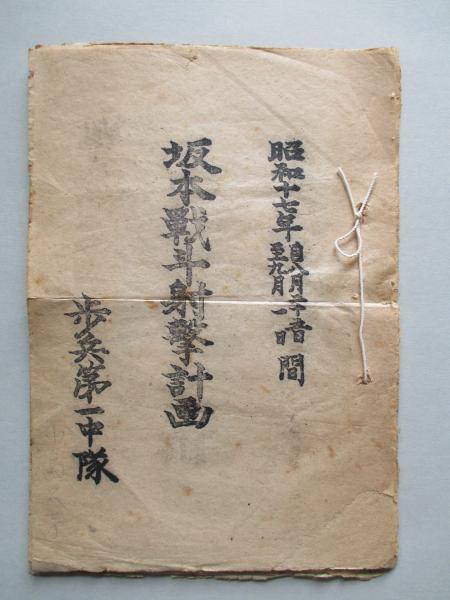 昭和十七年
自八月二十日
至九月一日
間
坂本戰斗射撃計画
歩兵第一中隊